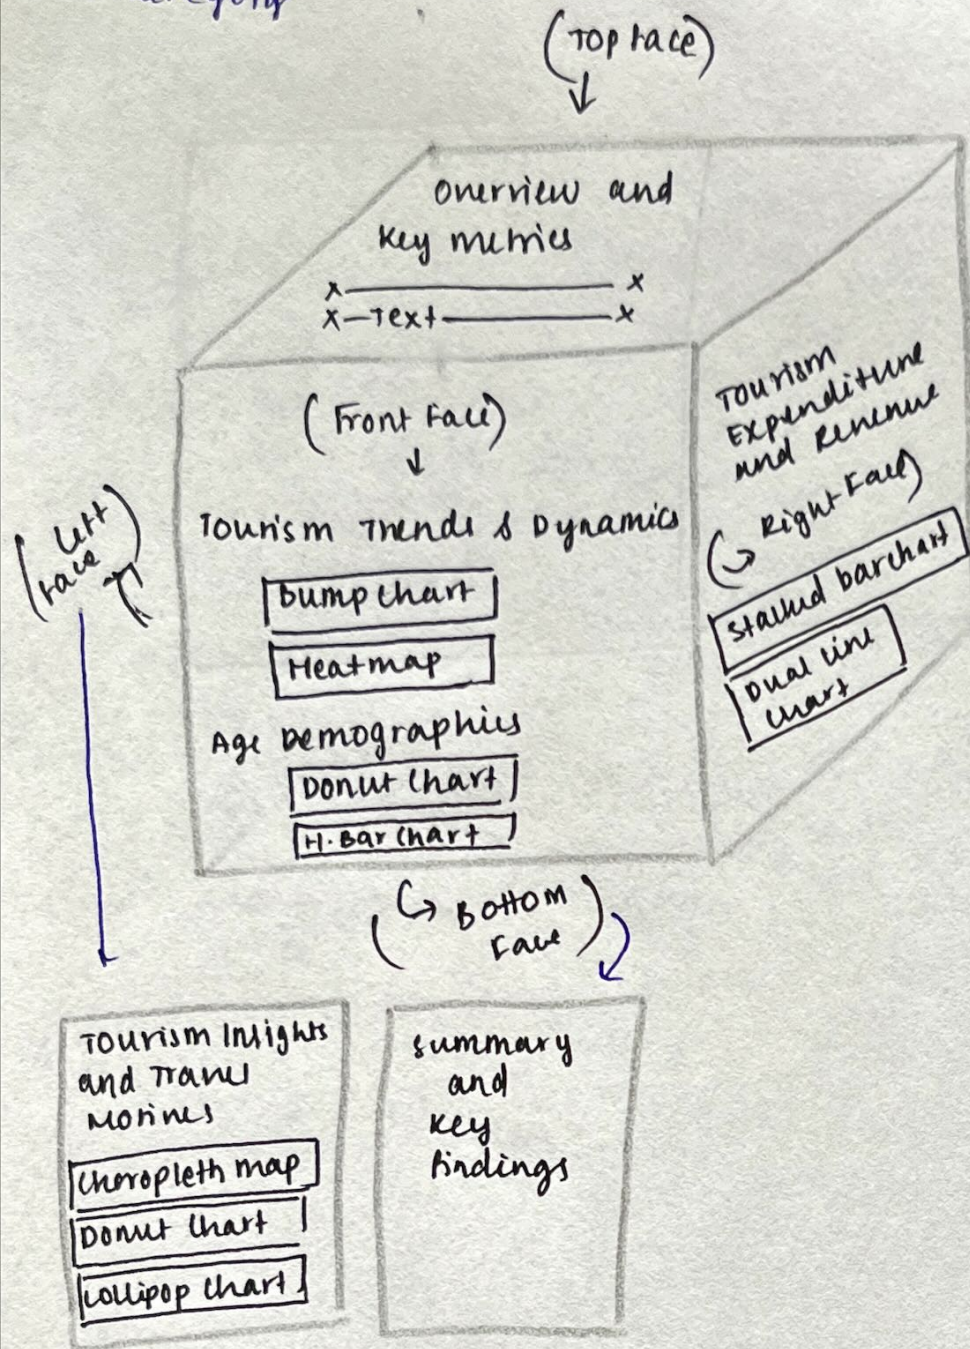 (Top Face)
Overview and
Key metrics
x x
x Text x
(Front Face)
Tourism Trends & Dynamics
Bump chart
Heatmap
Age Demographics
Donut Chart
H. Bar Chart
Tourism
Expenditure
and Revenue
(Right Face)
Stacked barchart
Dual line
chart
(Left
Face)
(Bottom
Face)
Tourism Insights
and Travel
Motives
Choropleth map
Donut Chart
Lollipop Chart
Summary
and
Key
Findings